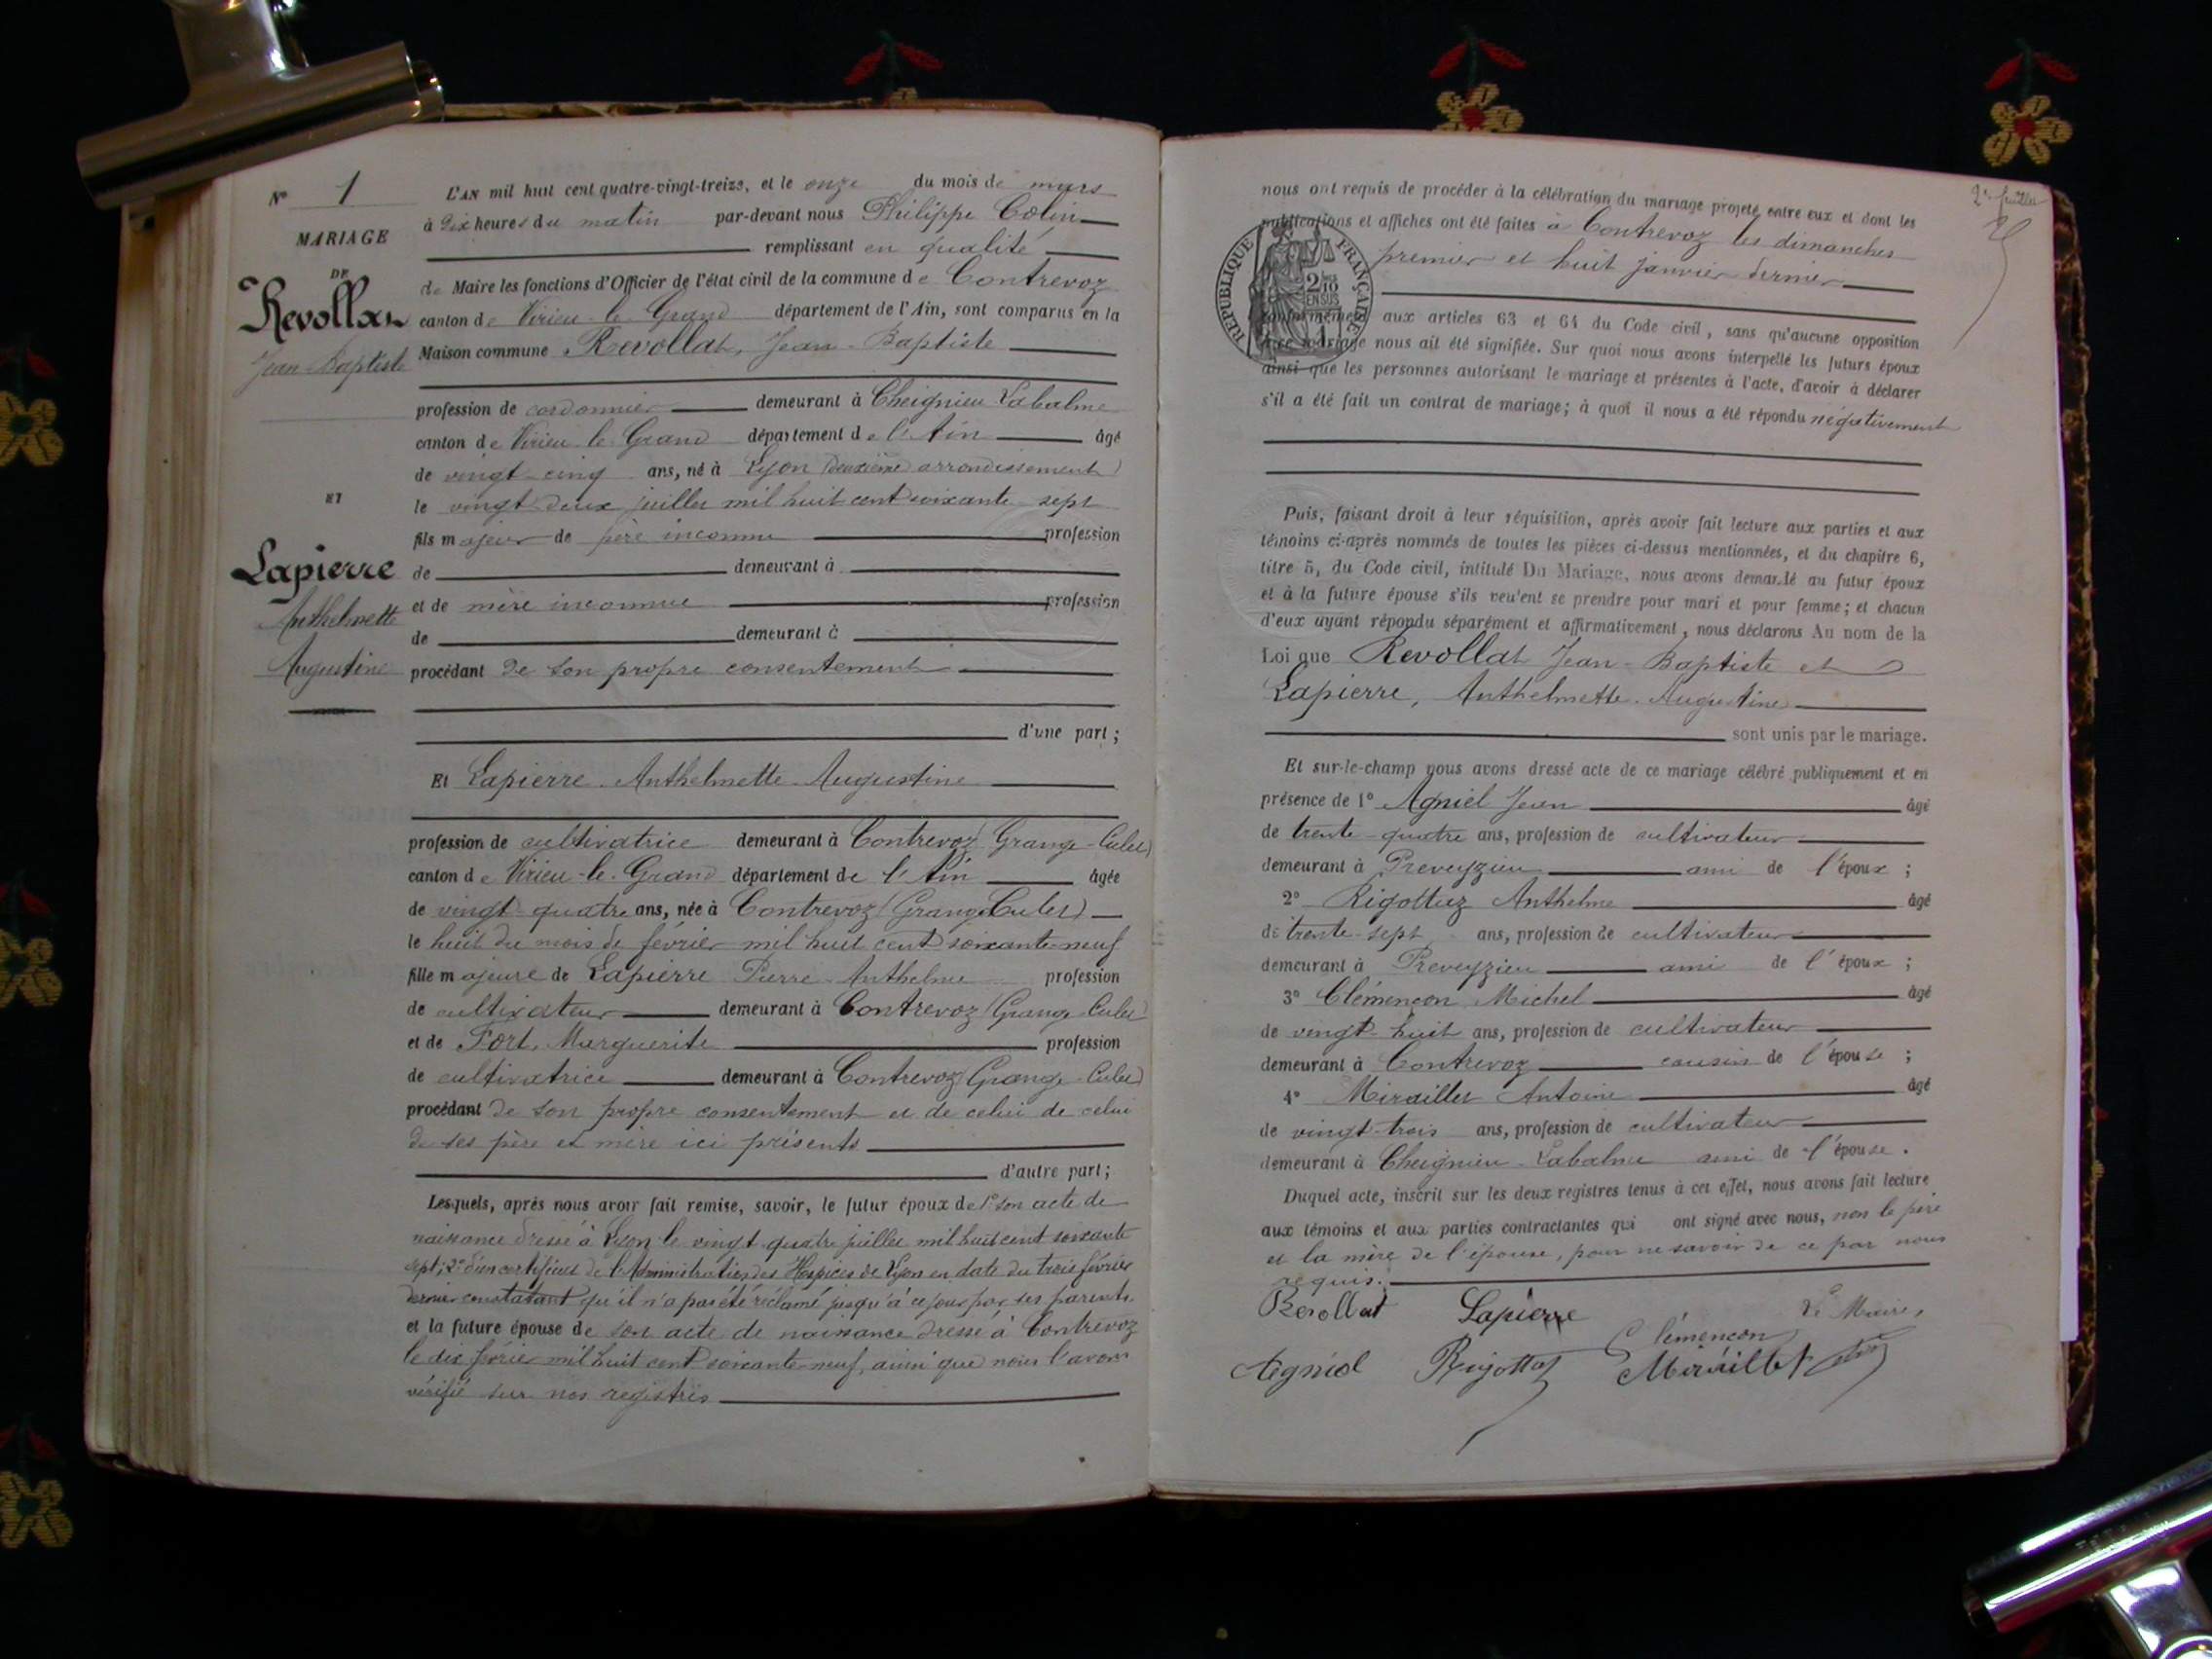 N° 1
MARIAGE
DE
Revollat
Jean-Baptiste
ET
Lapierre
Anthelmette
Augustine
L'AN mil huit cent quatre-vingt-treize, et le onze du mois de mars
à dix heures du matin par-devant nous Philippe Colin
remplissant en qualité
de Maire les fonctions d'Officier de l'état civil de la commune de Contrevoz
canton de Virieu-le-Grand département de l'Ain, sont comparus en la
Maison commune Revollat, Jean-Baptiste
profession de cordonnier demeurant à Cheignieu Labalme
canton de Virieu-le-Grand département de l'Ain âgé
de vingt-cinq ans, né à Lyon (deuxième arrondissement)
le vingt-deux juillet mil huit cent soixante-sept
fils majeur de père inconnu profession
de demeurant à
et de mère inconnue profession
de demeurant à
procédant de son propre consentement
d'une part;
Et Lapierre Anthelmette Augustine
profession de cultivatrice demeurant à Contrevoz (Grange-Culet)
canton de Virieu-le-Grand département de l'Ain âgée
de vingt-quatre ans, née à Contrevoz (Grange Culet)
le huit du mois de février mil huit cent soixante-neuf
fille majeure de Lapierre Pierre-Anthelme profession
de cultivateur demeurant à Contrevoz (Grange-Culet)
et de Fort, Marguerite profession
de cultivatrice demeurant à Contrevoz (Grange-Culet)
procédant de son propre consentement et de celui de celui
de ses père et mère ici présents
d'autre part;
Lesquels, après nous avoir fait remise, savoir, le futur époux de 1° son acte de
naissance dressé à Lyon le vingt-quatre juillet mil huit cent soixante
sept; 2° d'un certificat de l'Administration des Hospices de Lyon en date du trois février
dernier constatant qu'il n'a pas été réclamé jusqu'à ce jour par ses parents
et la future épouse de son acte de naissance dressé à Contrevoz
le dix février mil huit cent soixante-neuf, ainsi que nous l'avons
vérifié sur nos registres
2e feuillet
nous ont requis de procéder à la célébration du mariage projeté entre eux et dont les
publications et affiches ont été faites à Contrevoz les dimanches
premier et huit janvier dernier
RÉPUBLIQUE FRANÇAISE
2/10 EN SUS
conformément aux articles 63 et 64 du Code civil, sans qu'aucune opposition
à ce mariage nous ait été signifiée. Sur quoi nous avons interpellé les futurs époux
ainsi que les personnes autorisant le mariage et présentes à l'acte, d'avoir à déclarer
s'il a été fait un contrat de mariage; à quoi il nous a été répondu négativement
Puis, faisant droit à leur réquisition, après avoir fait lecture aux parties et aux
témoins ci-après nommés de toutes les pièces ci-dessus mentionnées, et du chapitre 6,
titre 5, du Code civil, intitulé Du Mariage, nous avons demandé au futur époux
et à la future épouse s'ils veulent se prendre pour mari et pour femme; et chacun
d'eux ayant répondu séparément et affirmativement, nous déclarons Au nom de la
Loi que Revollat Jean-Baptiste et
Lapierre, Anthelmette-Augustine
sont unis par le mariage.
Et sur-le-champ nous avons dressé acte de ce mariage célébré publiquement et en
présence de 1° Agniel Jean âgé
de trente-quatre ans, profession de cultivateur
demeurant à Preveyzieu ami de l'époux;
2° Rigottaz Anthelme âgé
de trente-sept ans, profession de cultivateur
demeurant à Preveyzieu ami de l'époux;
3° Clémençon Michel âgé
de vingt-huit ans, profession de cultivateur
demeurant à Contrevoz cousin de l'épouse;
4° Miraillet Antoine âgé
de vingt-trois ans, profession de cultivateur
demeurant à Cheignieu-Labalme ami de l'épouse.
Duquel acte, inscrit sur les deux registres tenus à cet effet, nous avons fait lecture
aux témoins et aux parties contractantes qui ont signé avec nous, non le père
et la mère de l'épouse, pour ne savoir de ce par nous
requis.
Revollat Lapierre Le Maire,
Clémençon
Agniel Rigottaz Miraillet